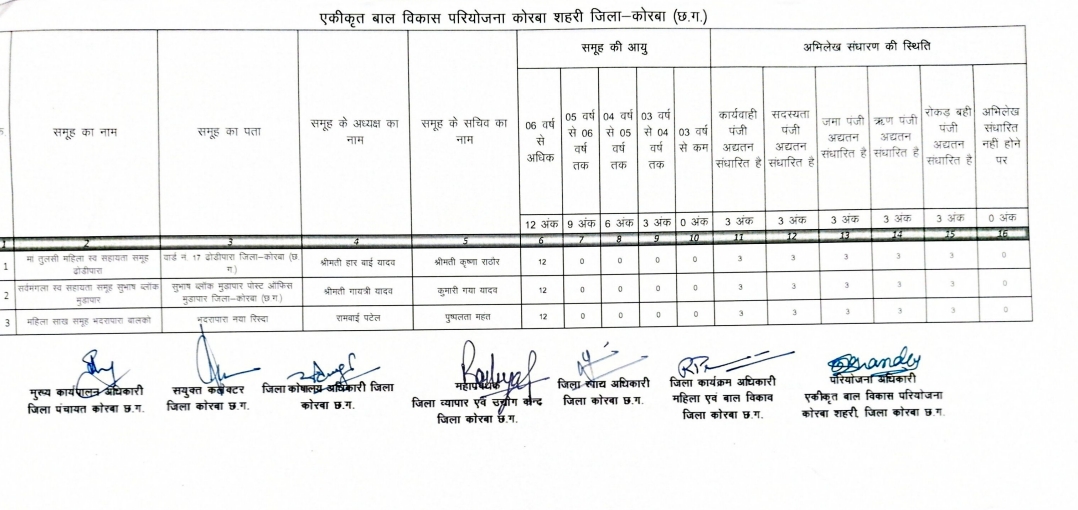 एकीकृत बाल विकास परियोजना कोरबा शहरी जिला–कोरबा (छ.ग.)
समूह का नाम
समूह का पता
समूह के अध्यक्ष का
नाम
समूह के सचिव का
नाम
समूह की आयु
06 वर्ष
से
अधिक
05 वर्ष
से 06
वर्ष
तक
04 वर्ष
से 05
वर्ष
तक
03 वर्ष
से 04
वर्ष
तक
03 वर्ष
से कम
अभिलेख संधारण की स्थिति
कार्यवाही
पंजी
अद्यतन
संधारित है
सदस्यता
पंजी
अद्यतन
संधारित है
जमा पंजी
अद्यतन
संधारित है
ऋण पंजी
अद्यतन
संधारित है
रोकड बही
पंजी
अद्यतन
संधारित है
अभिलेख
संधारित
नही होने
पर
12 अंक 9 अंक 6 अंक 3 अंक 0 अंक 3 अंक 3 अंक 3 अंक 3 अंक 3 अंक 0 अंक
1 2 3 4 5 6 7 8 9 10 11 12 13 14 15 16
1 मा तुलसी महिला स्व सहायता समूह
ढोडीपारा
वार्ड न. 17 ढोडीपारा जिला–कोरबा (छ.
ग.)
श्रीमती हार बाई यादव श्रीमती कृष्णा राठोर 12 0 0 0 0 3 3 3 3 3 0
2 सर्वमंगला स्व सहायता समूह सुभाष ब्लॉक
मुडापार
सुभाष ब्लॉक मुडापार पोस्ट ऑफिस
मुडापार जिला–कोरबा (छ.ग.)
श्रीमती गायत्री यादव कुमारी गया यादव 12 0 0 0 0 3 3 3 3 3 0
3 महिला साख समूह भदरापारा बालको भदरापारा नया रिस्दा रामबाई पटेल पुष्पलता महत 12 0 0 0 0 3 3 3 3 3 0
मुख्य कार्यपालन अधिकारी
जिला पंचायत कोरबा छ.ग.
सयुक्त कलेक्टर
जिला कोरबा छ.ग.
जिला कोषालय अधिकारी जिला
कोरबा छ.ग.
महाप्रबंधक
जिला व्यापार एवं उद्योग केन्द्र
जिला कोरबा छ.ग.
जिला खाद्य अधिकारी
जिला कोरबा छ.ग.
जिला कार्यक्रम अधिकारी
महिला एवं बाल विकाव
जिला कोरबा छ.ग.
परियोजना अधिकारी
एकीकृत बाल विकास परियोजना
कोरबा शहरी, जिला कोरबा छ.ग.